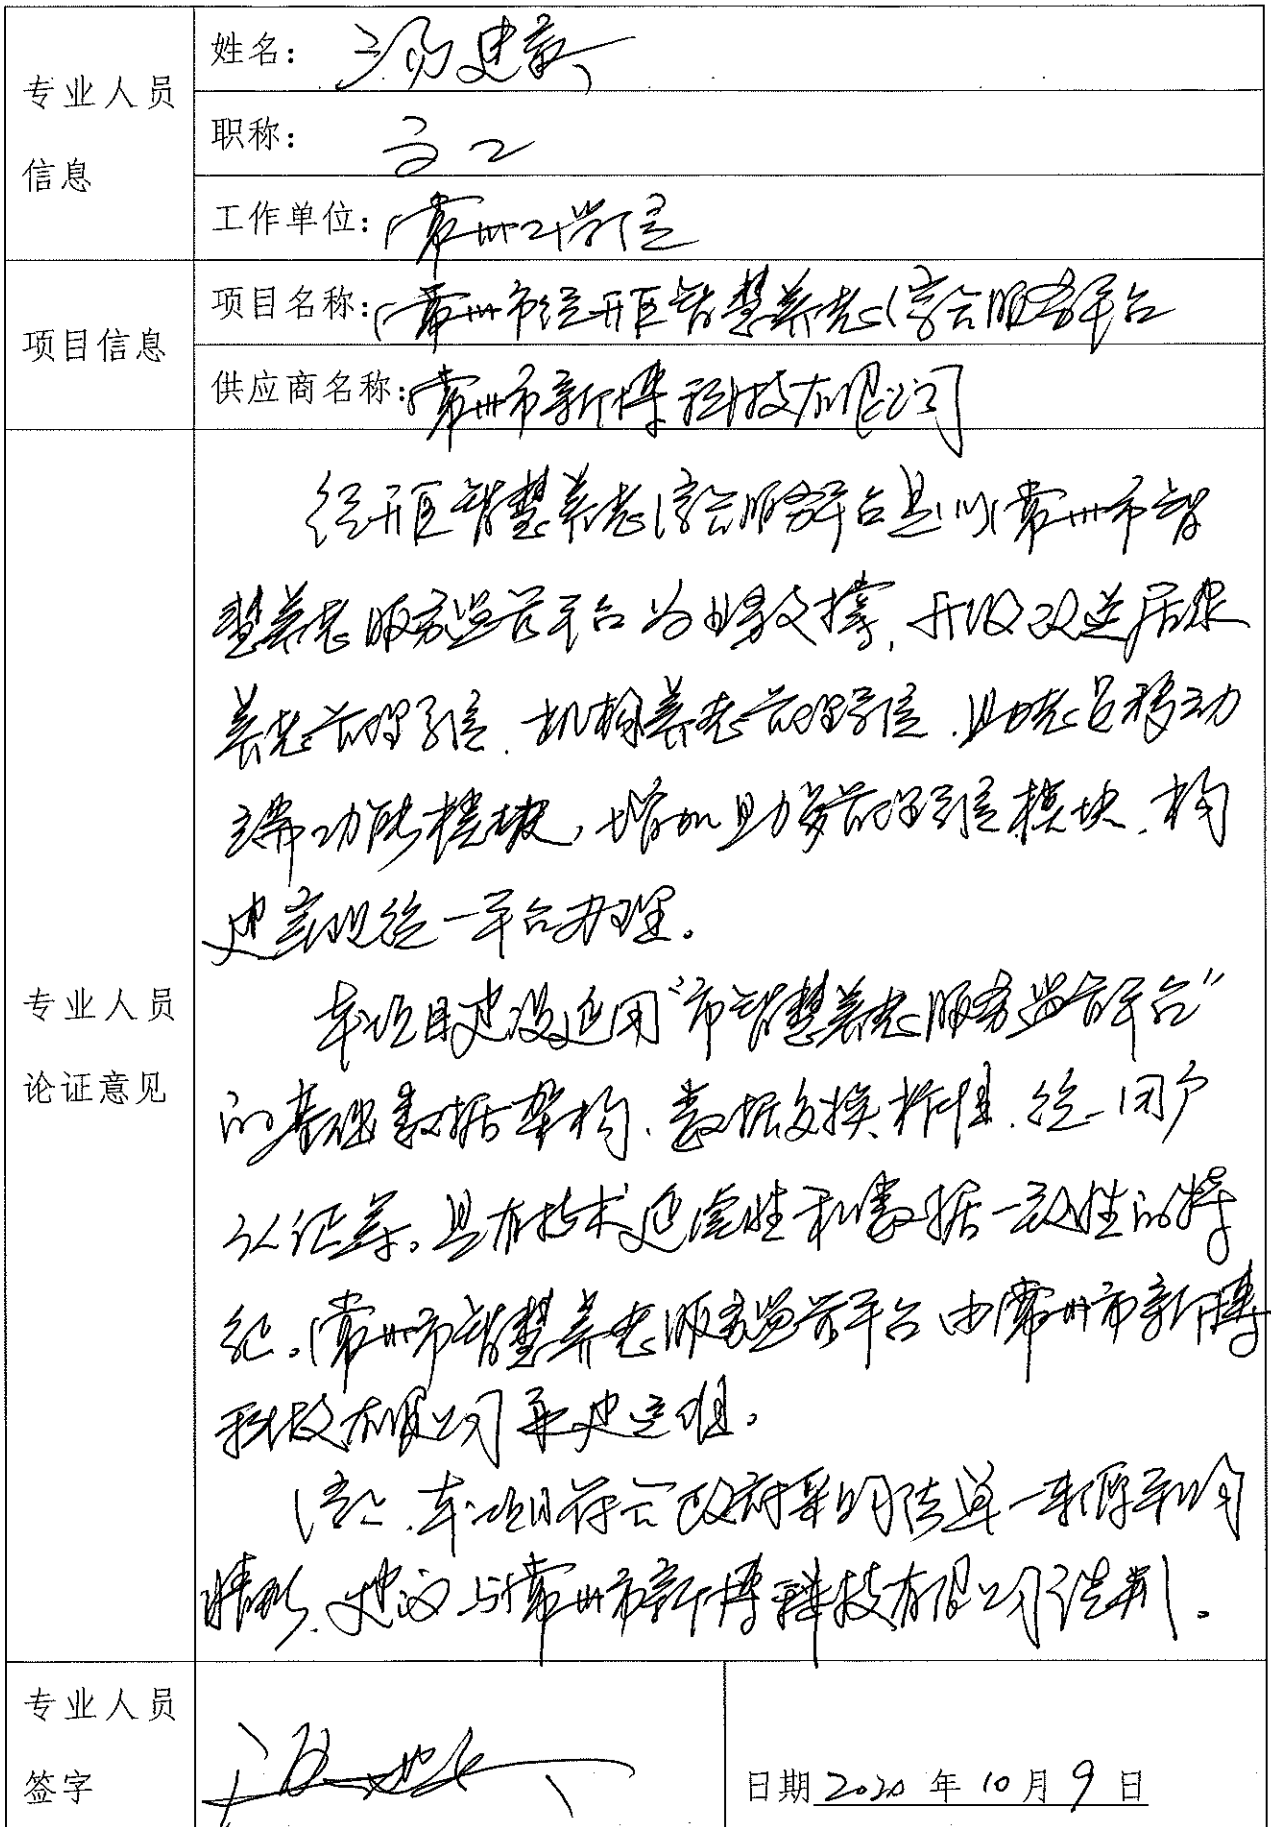 专业人员
信息
姓名：汤建
职称：高工
工作单位：常州工学院
项目信息
项目名称：常州市经开区智慧养老综合服务平台
供应商名称：常州市新博科技有限公司
专业人员
论证意见
经开区智慧养老综合服务平台是以常州市智
慧养老服务监管平台为业务支撑，开发改造居家
养老管理系统、机构养老管理系统、助老员移动
端功能模块，增加助餐管理系统模块、构
建实现统一平台办理。
本项目建设延用“市智慧养老服务监管平台”
的基础数据架构、数据交换标准、统一用户
认证等。具有技术延续性和数据一致性的特
征。常州市智慧养老服务监管平台由常州市新博
科技有限公司承建运维。
综上、本项目符合政府采购法单一来源采购
情形、建议与常州市新博科技有限公司谈判。
专业人员
签字
日期 2020 年 10 月 9 日